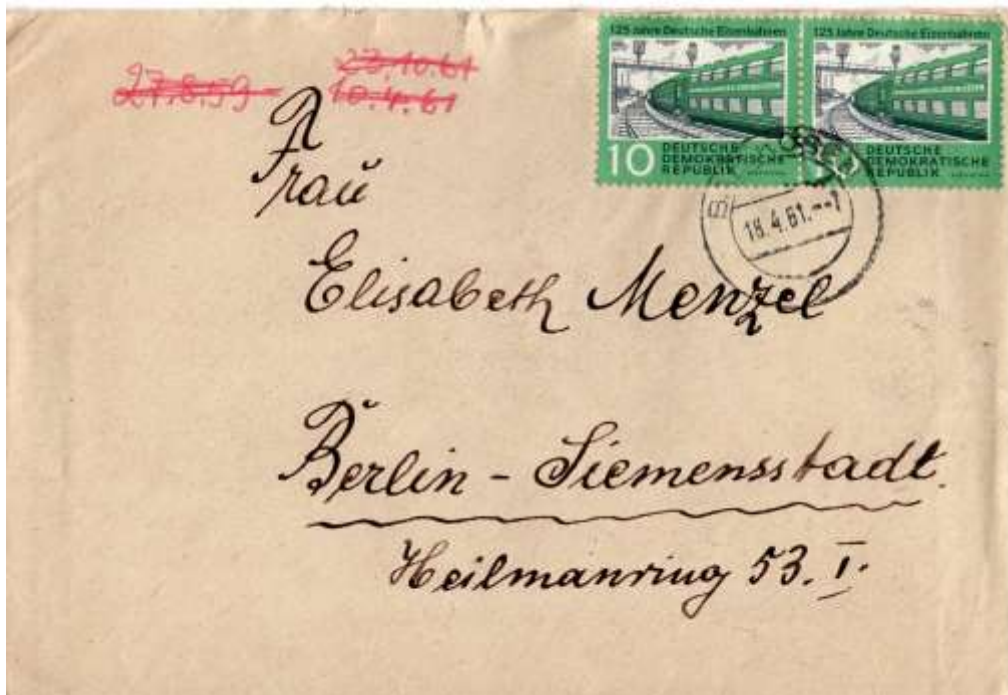 27.8.59
23.10.61
10.4.61
125 Jahre Deutsche Eisenbahnen
10 DEUTSCHE DEMOKRATISCHE REPUBLIK
125 Jahre Deutsche Eisenbahnen
DEUTSCHE DEMOKRATISCHE REPUBLIK
18.4.61.--7
Frau
Elisabeth Menzel
Berlin - Siemensstadt.
Heilmanring 53. I.